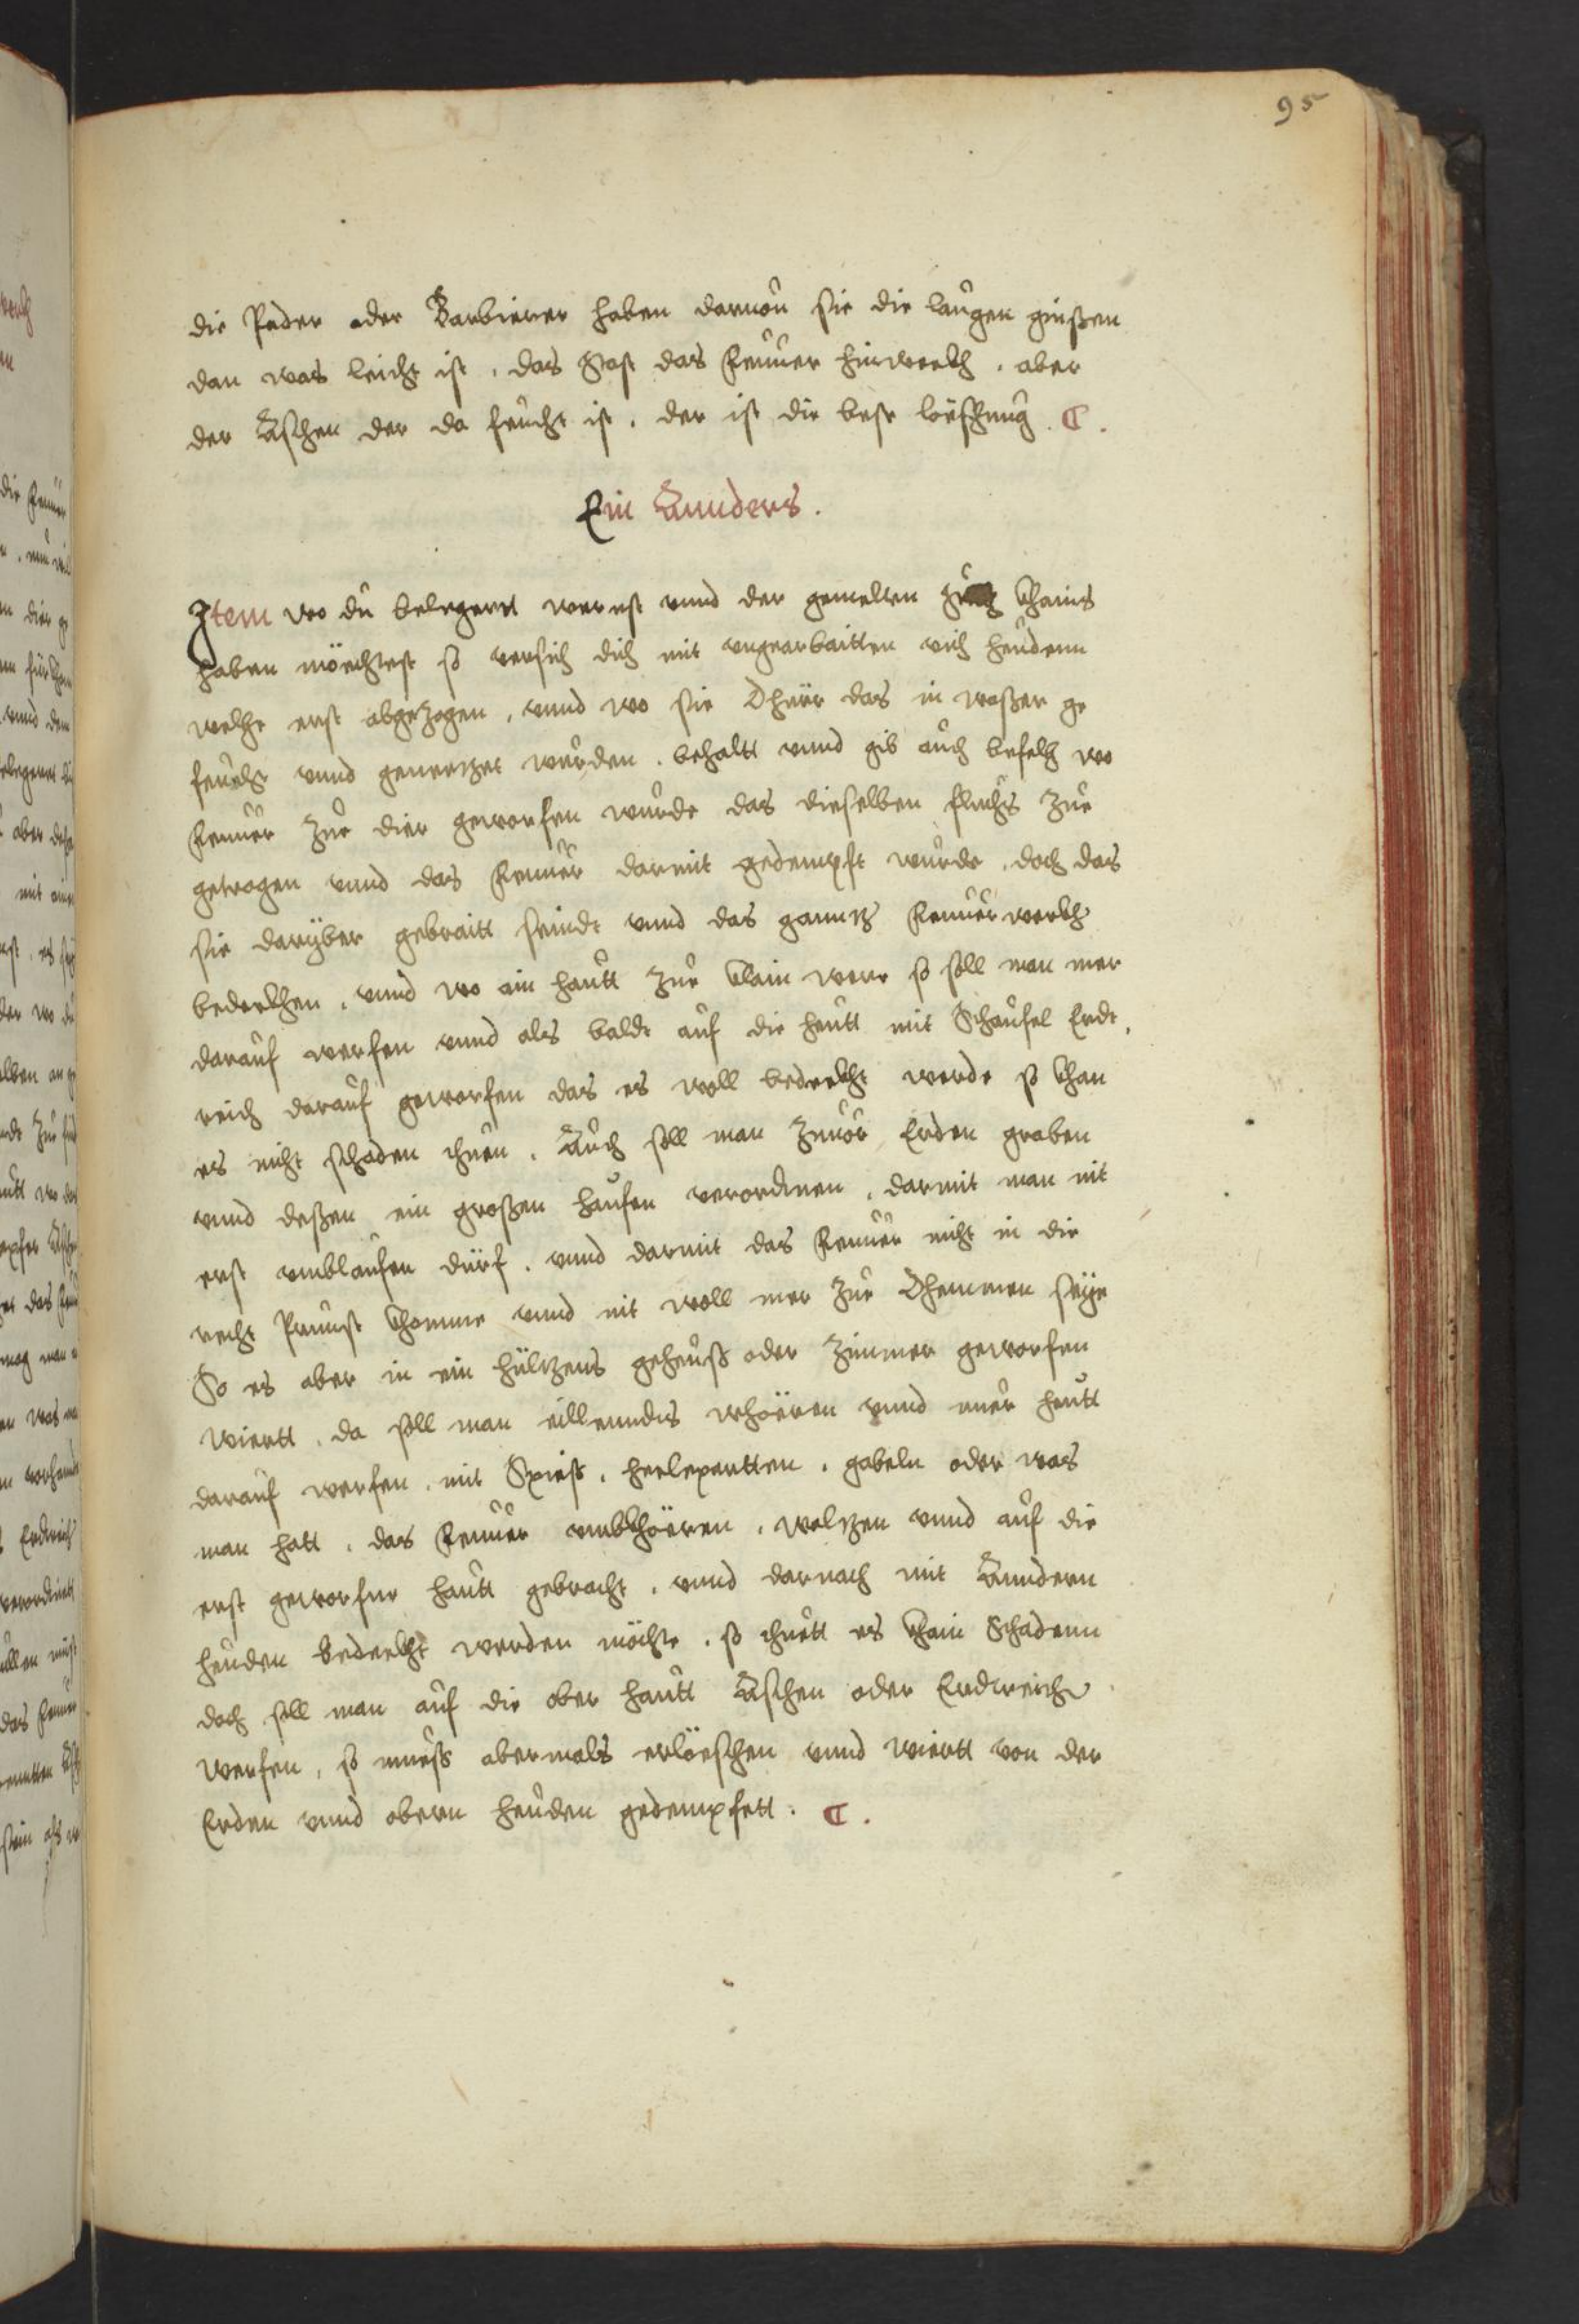 95
die Pader oder Barbierer haben daruon sie die laugen giessen
dan was leicht ist, das stost das feuuer hinwekh, aber
der Äschen der da feucht ist, der ist die beste löeschung. C.
Ein Annders.
Item wo du belegerrt werest vnnd der gemelten khains
haben möechtest so versich dich mit vngearbaitten vich heudenn
welche erst abgezogen, vnnd wo sie Dhüer das in waßer ge
feücht vnnd genetzet wurden, behaltt vnnd gib auch befelch wo
Feuuer zue dier geworfen wurde das dieselben fluchs zue
getragen vnnd das Feuuer darmit gedempft wurde, doch das
sie daryber gebraitt seindt vnnd das ganntz Feuuerwerkh
bedekhen, vnnd wo ain hautt zue klain were so soll man mer
darauf werfen vnnd als balde auf die heutt mit Schaufel Erdt,
reich darauf geworfen das es woll bedekht werde so khan
es nicht schaden thuen. Auch soll man zuuor Erden graben
vnnd deßen ein großen haufen verordnen, darmit man nit
erst vmblaufen dürf, vnnd darmit das Feuuer nicht in die
recht Prunst khomme vnnd nit woll mer zue Dhemmen seye
So es aber in ein hültzens geheuß oder Zimmer geworfen
wiertt, da soll man eillenndis whöeren vnnd nuer heutt
darauf werfen, mit Spieß, helepartten, gabeln oder was
man hatt, das Feuuer vmbkhöeren, weltzen vnnd auf die
erst geworfne hautt gebracht, vnnd darnach mit Änndern
heuden bedekht werden möchte, so thuett es khain Schadenn
doch soll man auf die ober hautt Äschen oder Erdtreich
werfen, so mueß abermals erlöeschen vnnd wiertt von der
Erden vnnd obern heuden gedempfett. C.